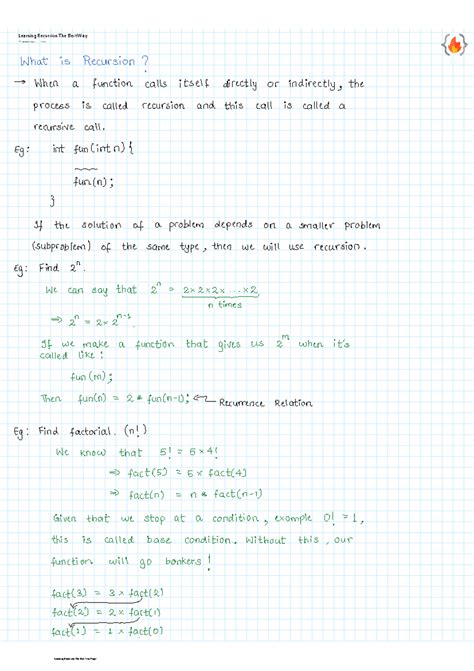 Learning Recursion The Best Way
What is Recursion ?
→ When a function calls itself directly or indirectly, the
process is called recursion and this call is called a
recursive call.
Eg: int fun(int n) {
fun(n);
}
If the solution of a problem depends on a smaller problem
(subproblem) of the same type, then we will use recursion.
Eg: Find 2ⁿ.
We can say that 2ⁿ = 2×2×2× ...×2
n times
⇒ 2ⁿ = 2× 2ⁿ⁻¹.
If we make a function that gives us 2ᵐ when it's
called like:
fun(m);
Then fun(n) = 2 * fun(n-1); ← Recurrence Relation
Eg: Find factorial. (n!)
We know that 5! = 5×4!
⇒ fact(5) = 5 × fact(4)
⇒ fact(n) = n * fact(n-1)
Given that we stop at a condition, example 0! = 1,
this is called base condition. Without this, our
function will go bonkers!
fact(3) = 3 × fact(2)
fact(2) = 2 × fact(1)
fact(1) = 1 × fact(0)